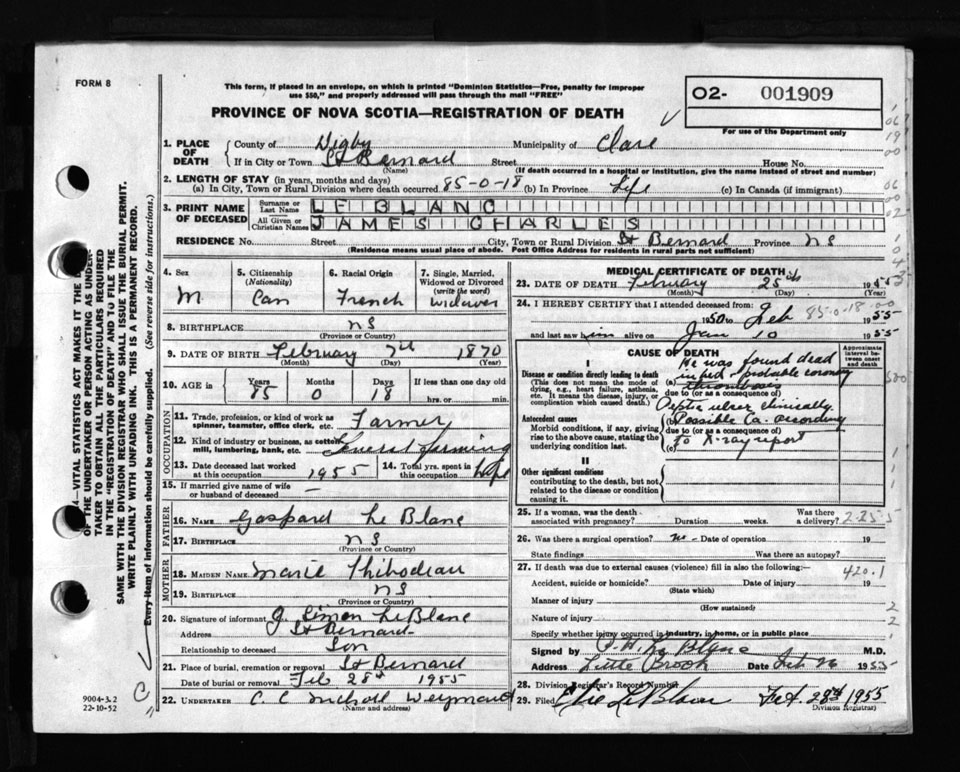 FORM 8
This form, if placed in an envelope, on which is printed "Dominion Statistics—Free, penalty for improper
use $50," and properly addressed will pass through the mail "FREE"
PROVINCE OF NOVA SCOTIA—REGISTRATION OF DEATH
O2- 001909
For use of the Department only
1. PLACE OF DEATH
County of Digby Municipality of Clare
If in City or Town St Bernard Street House No.
(Name) (If death occurred in a hospital or institution, give the name instead of street and number)
2. LENGTH OF STAY (in years, months and days)
(a) In City, Town or Rural Division where death occurred 85-0-18 (b) In Province Life (c) In Canada (if immigrant)
3. PRINT NAME OF DECEASED
Surname or Last Name LE BLANC
All Given or Christian Names JAMES CHARLES
RESIDENCE No. Street City, Town or Rural Division St Bernard Province N S
(Residence means usual place of abode. Post Office Address for residents in rural parts not sufficient)
4. Sex
M
5. Citizenship
(Nationality)
Can
6. Racial Origin
French
7. Single, Married, Widowed or Divorced
(write the word)
widower
8. BIRTHPLACE N S
(Province or Country)
9. DATE OF BIRTH February 7th 1870
(Month) (Day) (Year)
10. AGE in Years Months Days If less than one day old
85 0 18 hrs. or min.
OCCUPATION
11. Trade, profession, or kind of work as
spinner, teamster, office clerk, etc. Farmer
12. Kind of industry or business, as cotton
mill, lumbering, bank, etc. General farming
13. Date deceased last worked
at this occupation 1955
14. Total yrs. spent in
this occupation Life
15. If married give name of wife
or husband of deceased —
FATHER
16. NAME Gaspard Le Blanc
17. BIRTHPLACE N S
(Province or Country)
MOTHER
18. MAIDEN NAME Marie Thibodeau
19. BIRTHPLACE N S
(Province or Country)
20. Signature of informant J. Simon LeBlanc
Address St Bernard
Relationship to deceased Son
21. Place of burial, cremation or removal St Bernard
Date of burial or removal Feb 28th 1955
22. UNDERTAKER C. C. Nicholl Weymouth
(Name and address)
MEDICAL CERTIFICATE OF DEATH
23. DATE OF DEATH February 25th 1955
(Month) (Day) (Year)
24. I HEREBY CERTIFY that I attended deceased from
1950 to Feb 1955
85-0-18
and last saw him alive on Jan 10 1955
CAUSE OF DEATH
Approximate interval between onset and death
I
Disease or condition directly leading to death
(This does not mean the mode of dying, e.g., heart failure, asthenia, etc. It means the disease, injury, or complication which caused death.)
He was found dead
(a) in bed, probable coronary
thrombosis
due to (or as a consequence of)
Antecedent causes
Morbid conditions, if any, giving rise to the above cause, stating the underlying condition last.
Peptic ulcer clinically.
(b) Possible Ca. according
due to (or as a consequence of)
(c) to X-ray report
II
Other significant conditions
contributing to the death, but not related to the disease or condition causing it.
25. If a woman, was the death
associated with pregnancy? Duration weeks. Was there a delivery?
2-25-5
26. Was there a surgical operation? no Date of operation 19
State findings Was there an autopsy?
27. If death was due to external causes (violence) fill in also the following:—
420.1
Accident, suicide or homicide? Date of injury 19
(State which)
Manner of injury
(How sustained)
Nature of injury
Specify whether injury occurred in industry, in home, or in public place
Signed by P. H. Le Blanc M.D.
Address Little Brook Date Feb 26 1955
28. Division Registrar's Record Number
29. Filed Feb. 28th 1955
Division Registrar
14—VITAL STATISTICS ACT MAKES IT THE
OF THE UNDERTAKER OR PERSON ACTING AS UNDER-
TAKER TO OBTAIN ALL THE PARTICULARS REQUIRED
IN THE "REGISTRATION OF DEATH" AND TO FILE THE
SAME WITH THE DIVISION REGISTRAR WHO SHALL ISSUE THE BURIAL PERMIT.
WRITE PLAINLY WITH UNFADING INK. THIS IS A PERMANENT RECORD.
Every item of information should be carefully supplied. (See reverse side for instructions.)
9004-3.2
22-10-52